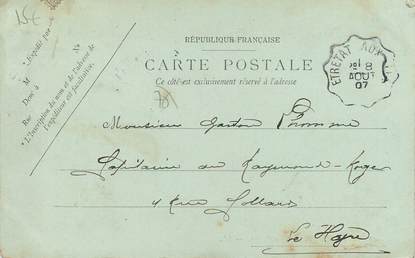 15€
RÉPUBLIQUE FRANÇAISE
CARTE POSTALE
Ce côté est exclusivement réservé à l'adresse
Expédié par
M
Demt à
Rue
N°
*L'Inscription du nom et de l'adresse de
l'expéditeur est facultative.
ETRETAT AU
8
AOUT
07
Monsieur Gaston Lhomme
Capitaine du Raymond-Roger
4 Rue
Le Havre